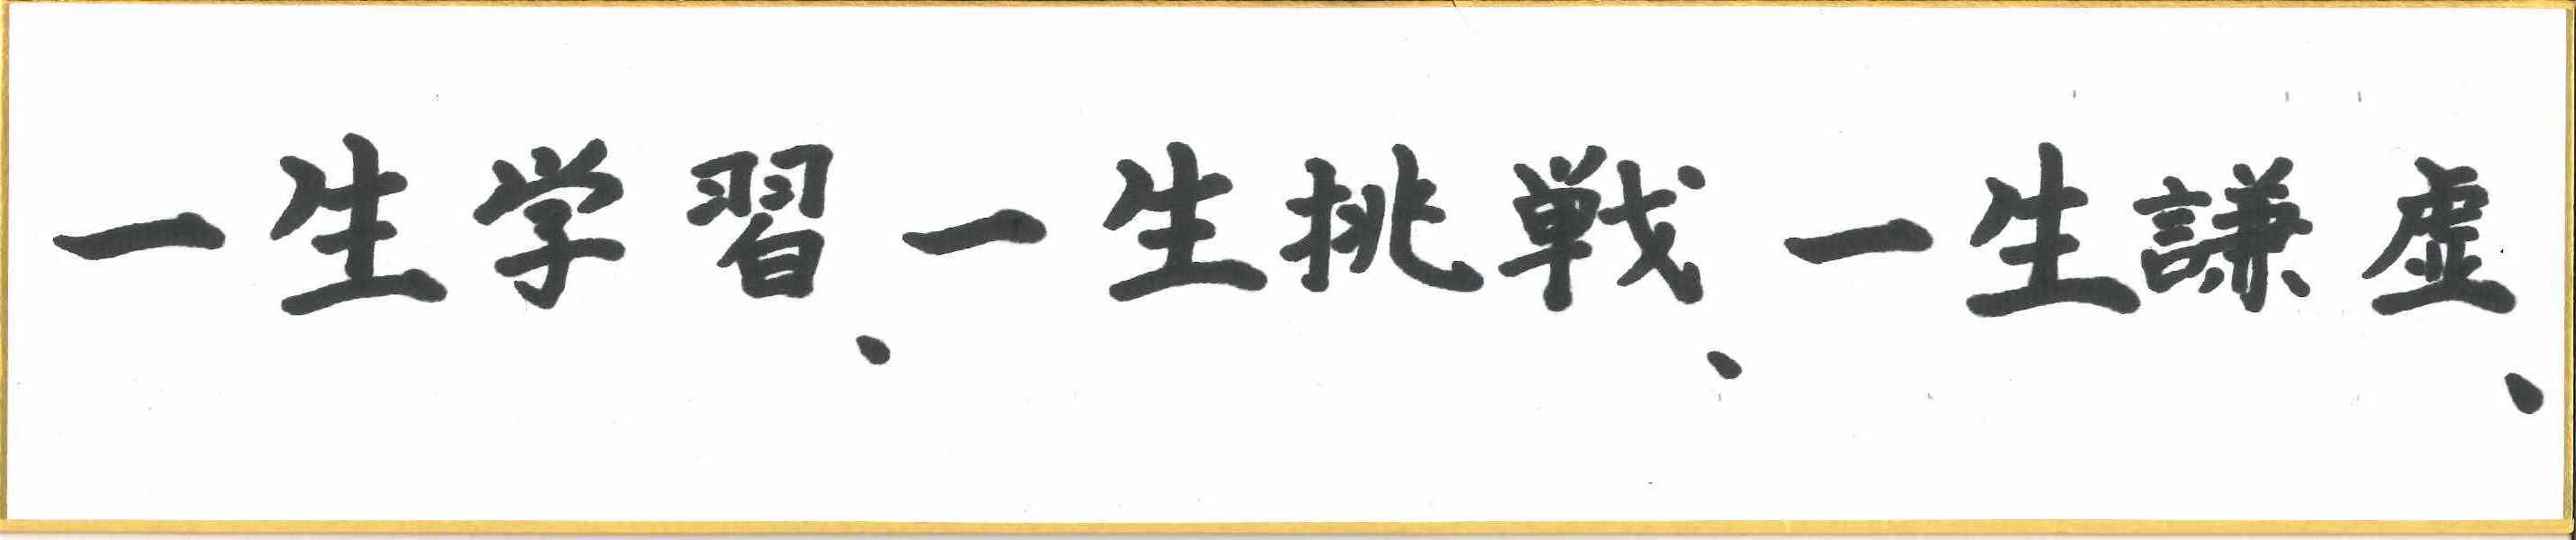 一生学習、一生挑戦、一生謙虚、